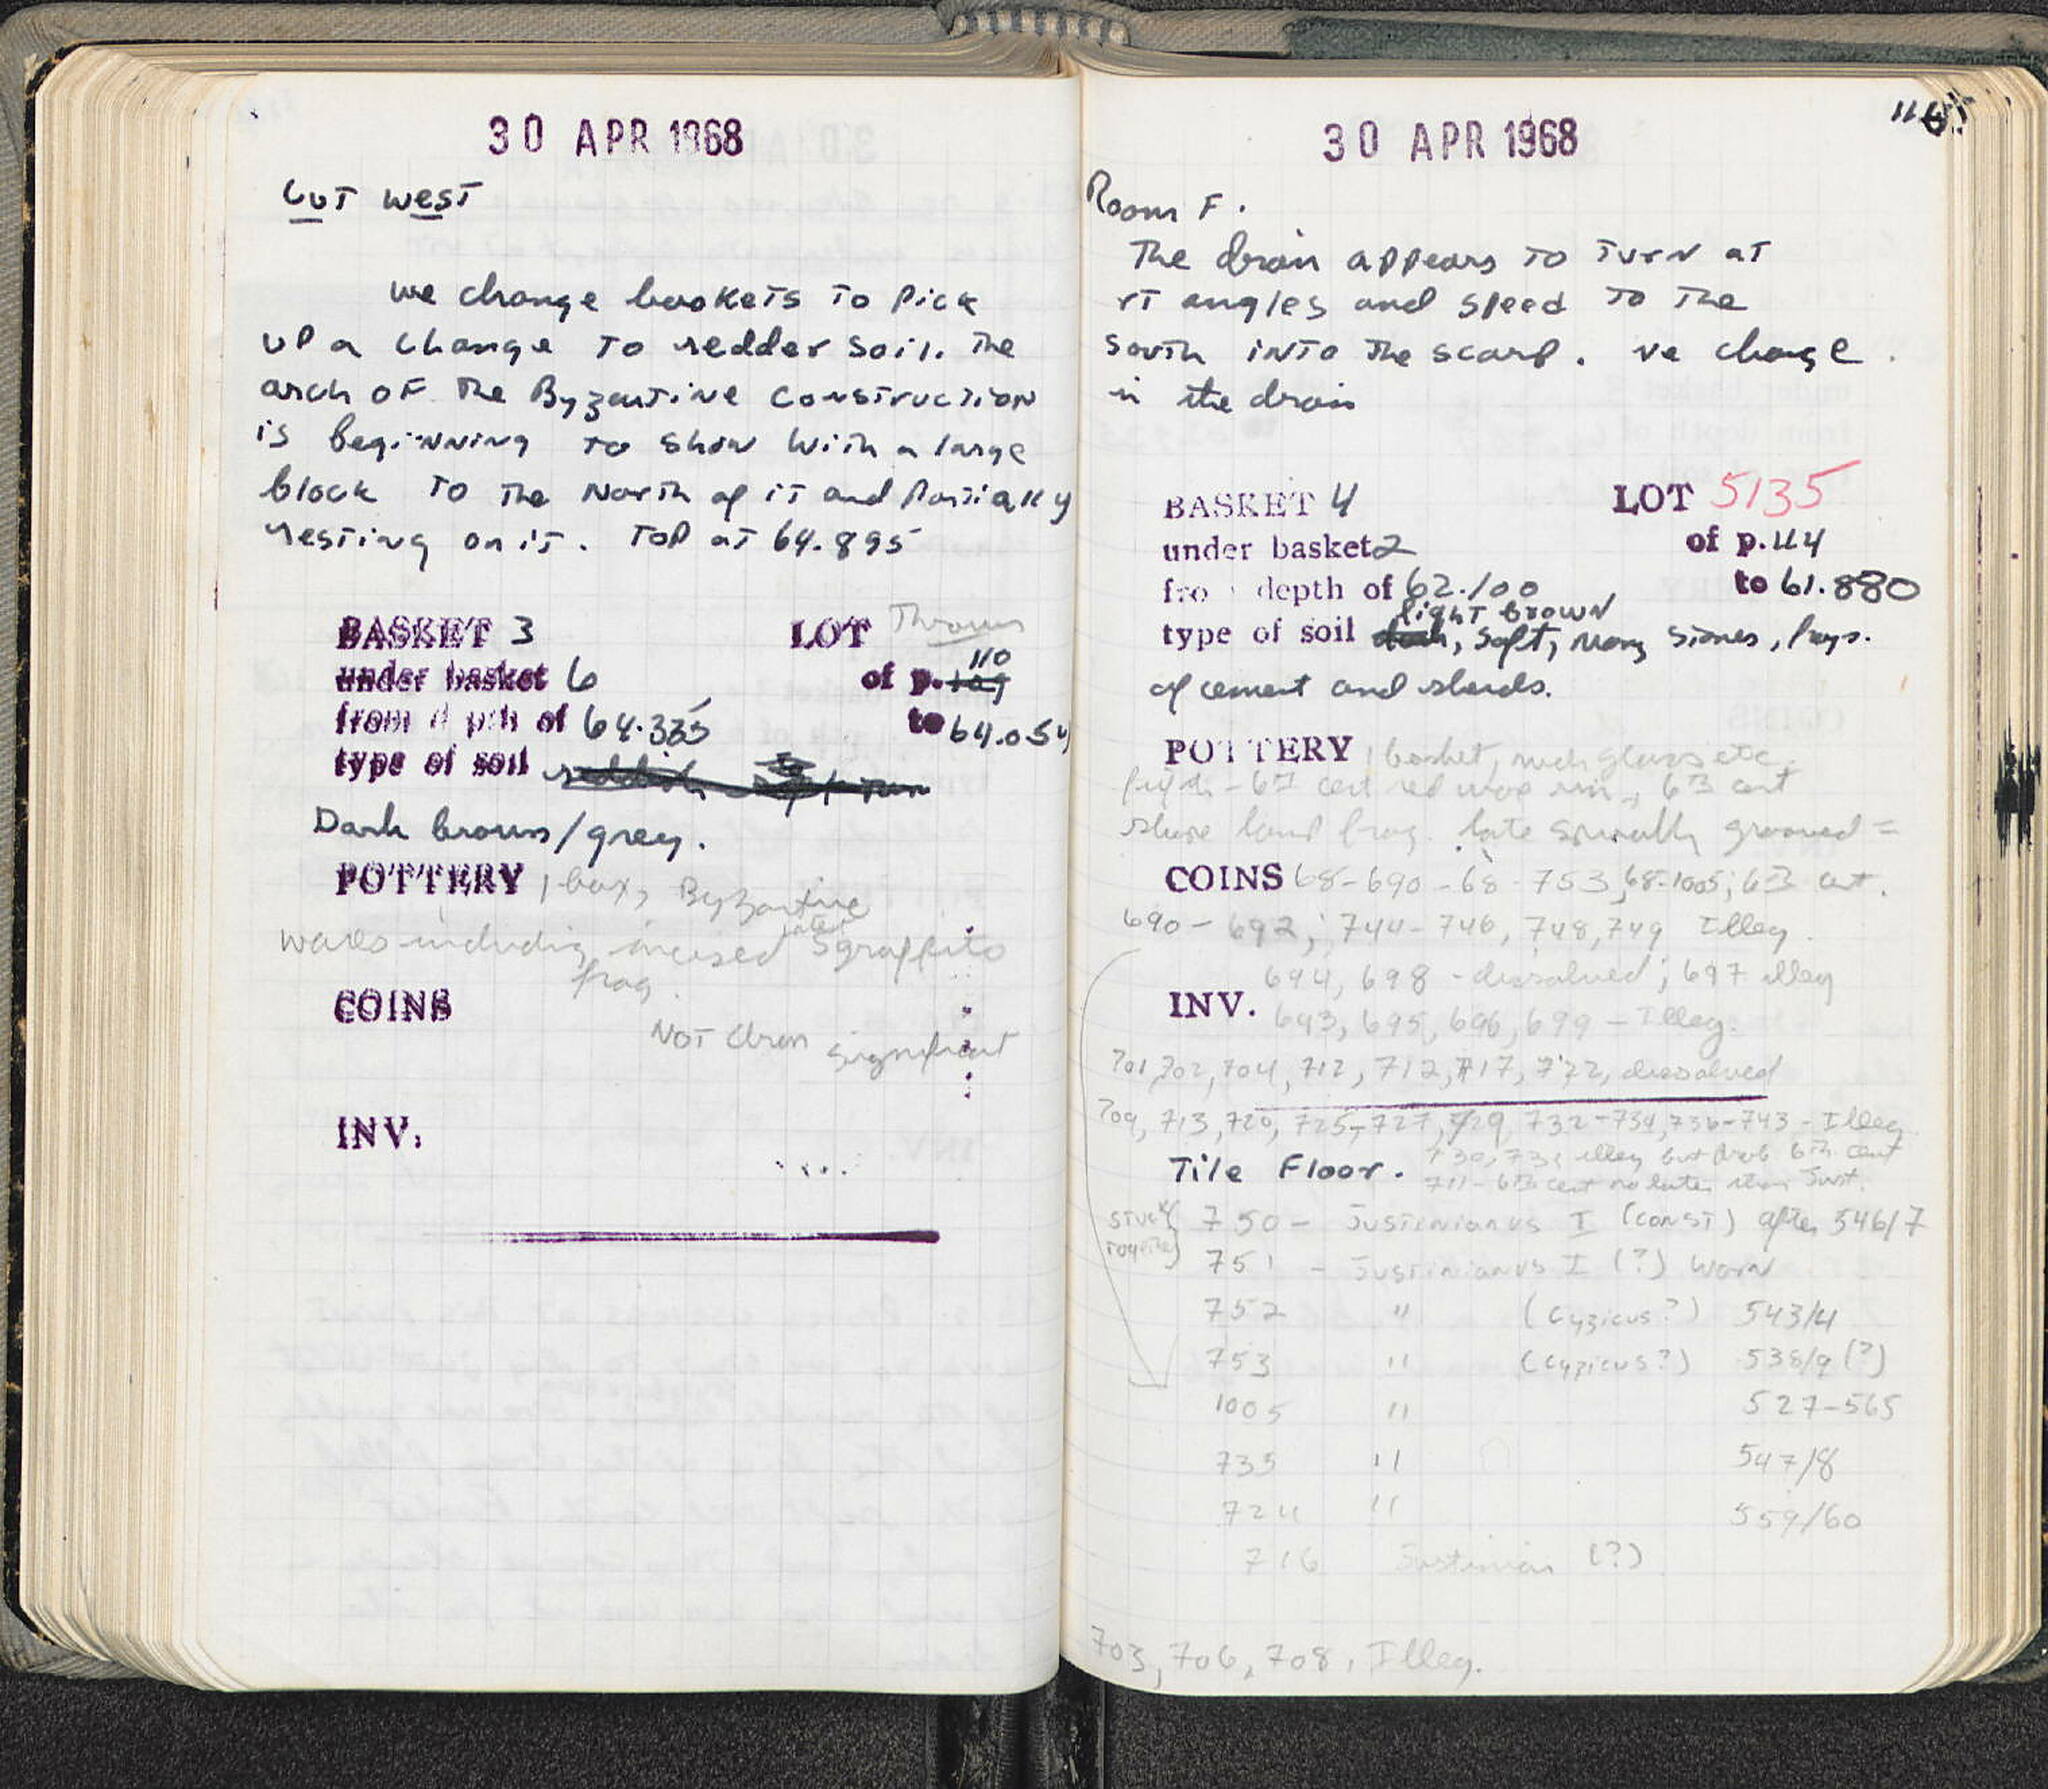 30 APR 1968
CUT WEST
we change baskets to Pick
up a change to redder soil. The
arch of the Byzantine construction
is beginning to show with a large
block to the North of it and Partially
resting on it. Top at 64.895
BASKET 3 LOT Thrown
under basket 6 of p. 110
from depth of 64.335 to 64.054
type of soil
Dark brown/grey.
POTTERY 1 box, Byzantine
wares including incised sgraffito
frag.
COINS
NOT chron significant
INV.
30 APR 1968
Room F.
The drain appears to turn at
rt angles and speed to the
south into the scarp. we change
in the drain
BASKET 4 LOT 5135
under basket 2 of p. 114
fro depth of 62.100 to 61.880
light brown
type of soil , soft, many stones, frags.
of cement and sherds.
POTTERY 1 basket, much glass etc.
6th cent red ware rim, 6th cent
lamp frag. late spirally grooved =
COINS 68-690-68-753, 68-1005; 6th cent.
690-692; 744-746, 748, 749 Illeg.
694, 698 - dissolved; 697 illeg
INV. 693, 695, 696, 699 - Illeg.
701, 702, 704, 712, 712, 717, 722, dissolved
709, 713, 720, 725-727, 729, 732-734, 736-743 - Illeg.
730, 731 illeg but prob 6th cent
Tile Floor. 711 - 6th cent no later than Just.
stuck together
750 - Justinianus I (Const) after 546/7
751 - Justinianus I (?) worn
752 " (Cyzicus?) 543/4
753 " (Cyzicus?) 538/9 (?)
1005 " 527-565
735 " 547/8
724 " 559/60
716 Justinian (?)
703, 706, 708, Illeg.